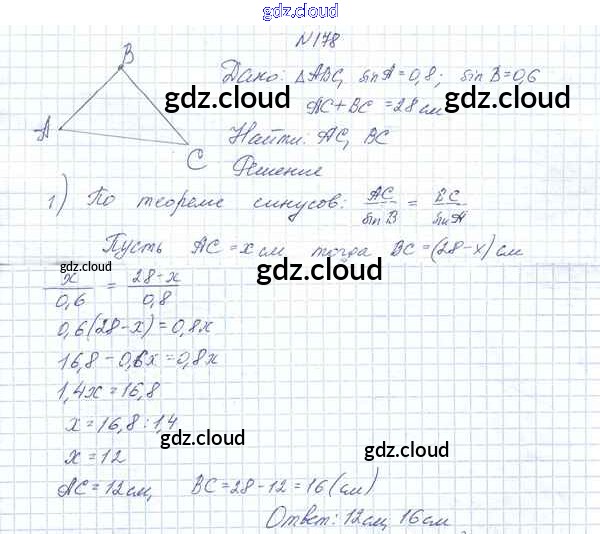 gdz.cloud
N178
B
Дано: △ABC, sin A = 0,8; sin B = 0,6
gdz.cloud gdz.cloud
AC + BC = 28 см
A
Найти: AC, BC
C
Решение
1) По теореме синусов: AC/sin B = BC/sin A
Пусть AC = x см тогда BC = (28 - x) см
gdz.cloud gdz.cloud
x/0,6 = 28 - x/0,8
0,6(28 - x) = 0,8x
16,8 - 0,6x = 0,8x
gdz.cloud gdz.cloud
1,4x = 16,8
x = 16,8 : 1,4
gdz.cloud
x = 12
AC = 12 см, BC = 28 - 12 = 16 (см)
gdz.cloud
Ответ: 12 см, 16 см